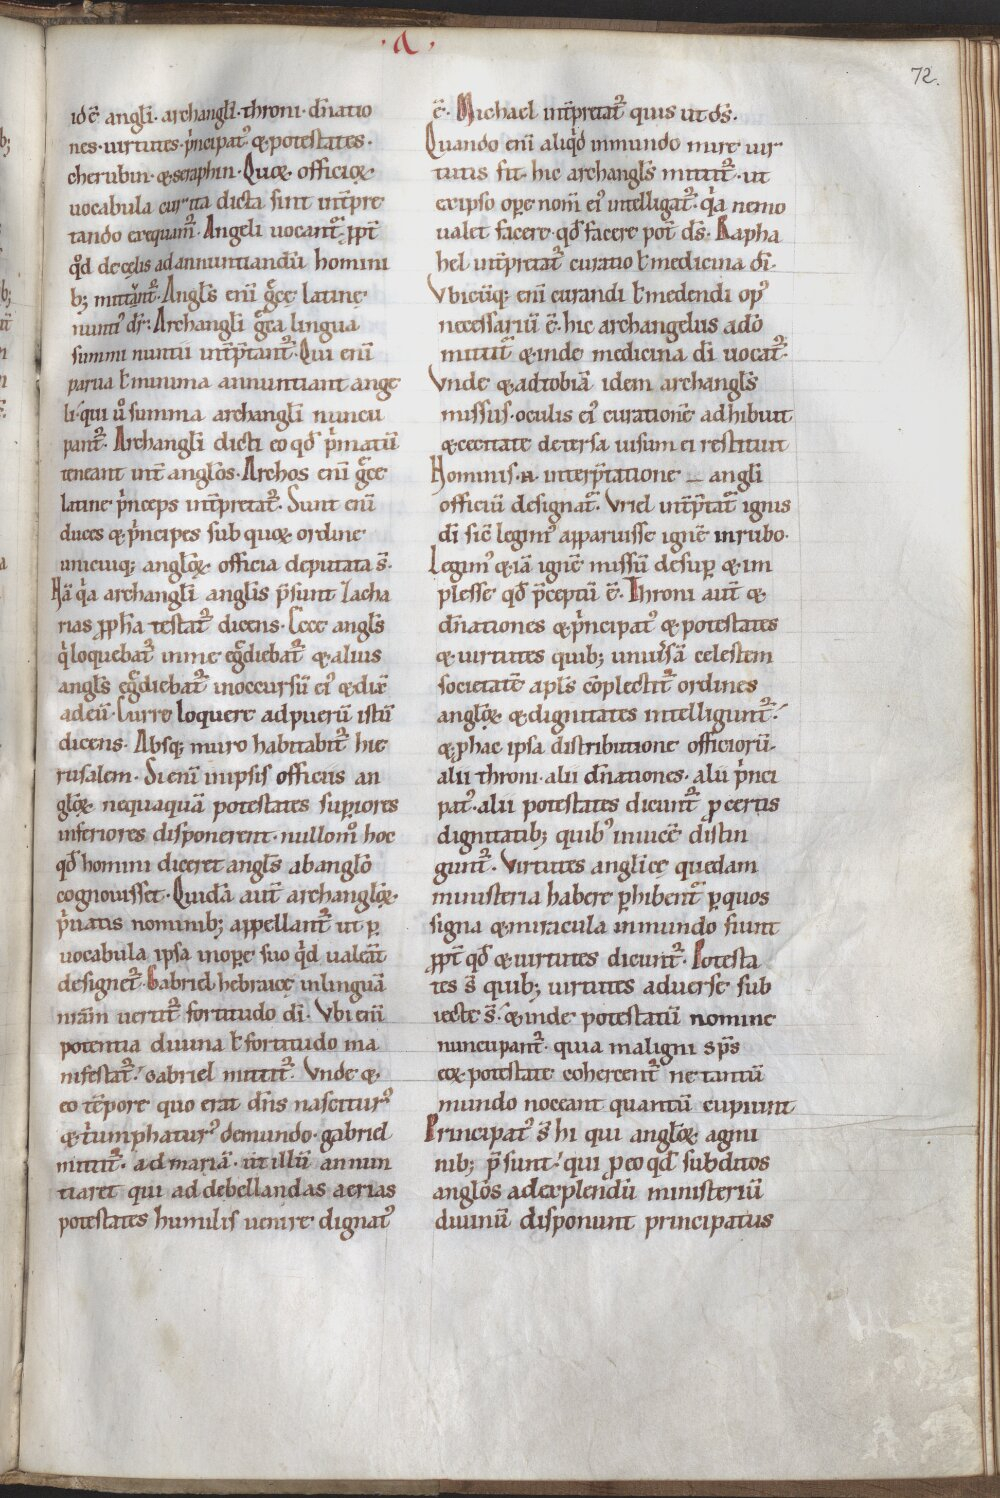 .a.
72.
idē angli. archangli. throni. dñatio
nes. uirtutes. p̃ncipatꝰ ⁊ potestates.
cherubin. ⁊ seraphin. Quoꝝ officioꝝ
uocabula cur ita dicta sint int̃pre
tando exequam̃. Angeli uocant᷑ ꝓpt̃
qđ de celis ad annuntiandū homini
b; mittant᷑. Angls̃ enī grece latine
nuntiꝰ dr̃. Archangli greca lingua
summi nuntii int̃p̃tant᷑. Qui enī
parua ł minima annuntiant ange
li. qui ů summa archangli nuncu
pant᷑. Archangli dicti eo qđ p̃matū
teneant int̃ anglos. Archos enī grece
latine p̃nceps int̃pretat᷑. Sunt enī
duces ⁊ p̃ncipes sub quoꝝ ordine
unicuiq; angloꝝ officia deputata s̃.
Nā qͥa archangli anglis p̃sunt Zacha
rias ꝓpħa testat᷑ dicens. Ecce angls̃
qͥ loquebat᷑ in me egͣdiebat᷑ ⁊ alius
angls̃ egͣdiebat᷑ in occursū eiꝰ ⁊ dix̃
ad eū. Curre loquere ad puerū istū
dicens. Absq; muro habitabit᷑ hie
rusalem. Si enī in ipsis officiis an
gloꝝ nequaquā potestates sup̱iores
inferiores disponerent. nullom̊ hoc
qđ homini diceret angls̃ ab anglo
cognouisset. Quidā aut̃ archangloꝝ
p̃uatis nominib; appellant᷑ ut p̱
uocabula ipsa in op̱e suo qͥd ualeāt
designet᷑. Gabriel hebraice in linguā
nrām uertit᷑ fortitudo di. Vbi enī
potentia diuina ł fortitudo ma
nifestat᷑. Gabriel mittit᷑. Vnde ⁊
eo tēpore quo erat dñs nasciturꝰ
⁊ t̃umphaturꝰ de mundo. gabriel
mittit᷑. ad mariā. ut illū annun
tiaret qui ad debellandas aerias
potestates humilis uenire dignatꝰ
ē. Michael int̃pretat᷑ quis ut ds̃.
Quando enī aliqͥd in mundo mire uir
tutis fit. hic archangls̃ mittit᷑. ut
ex ipso op̱e nom̃ eiꝰ intelligat᷑. qͥa nemo
ualet facere. qđ facere pot̃ ds̃. Rapha
hel int̃p̃tat᷑ curatio ł medicina di.
Vbicūq; enī curandi ł medendi opꝰ
necessariū ē. hic archangelus a dō
mittit᷑ ⁊ inde medicina di uocat᷑.
Vnde ⁊ ad tobiā idem archangls̃
missus. oculis eiꝰ curationē adhibuit
⁊ cecitate detersa uisum ei restituit
Hominis. n̄. interp̃tatione ⁊ angli
officiū designat᷑. Vriel int̃p̃tat᷑ ignis
di sic̃ legimꝰ apparuisse ignē in rubo.
Legimꝰ ⁊iā ignē missū desup̱ ⁊ im
plesse qđ p̃ceptū ē. Throni aut̃ ⁊
dñationes ⁊ p̃ncipatꝰ ⁊ potestates
⁊ uirtutes quib; uniũsā celestem
societatē apls̃ cōplectit᷑ ordines
angloꝝ ⁊ dignitates intelligunt᷑.
⁊ p̱ hac ipsa distributione officiorū.
alii throni. alii dñationes. alii p̃nci
patꝰ. alii potestates dicunt᷑ ꝓ certis
dignitatib; quibꝰ inuicē distin
gunt᷑. Virtutes anglice quedam
ministeria habere p̱hibent᷑ p̱ quos
signa ⁊ miracula in mundo fiunt
ꝓpt̃ qđ ⁊ uirtutes dicunt᷑. Potesta
tes s̃ quib; uirtutes aduerse sub
iecte s̃. ⁊ inde potestatū nomine
nuncupant᷑. quia maligni sp̃s
eoꝝ potestate cohercent᷑ ne tantū
mundo noceant quantū cupiunt
Principatꝰ s̃ hi qui angloꝝ agmi
nib; p̃sunt. qui ꝓ eo qđ subditos
anglos ad explendū ministeriū
diuinū disponunt principatus